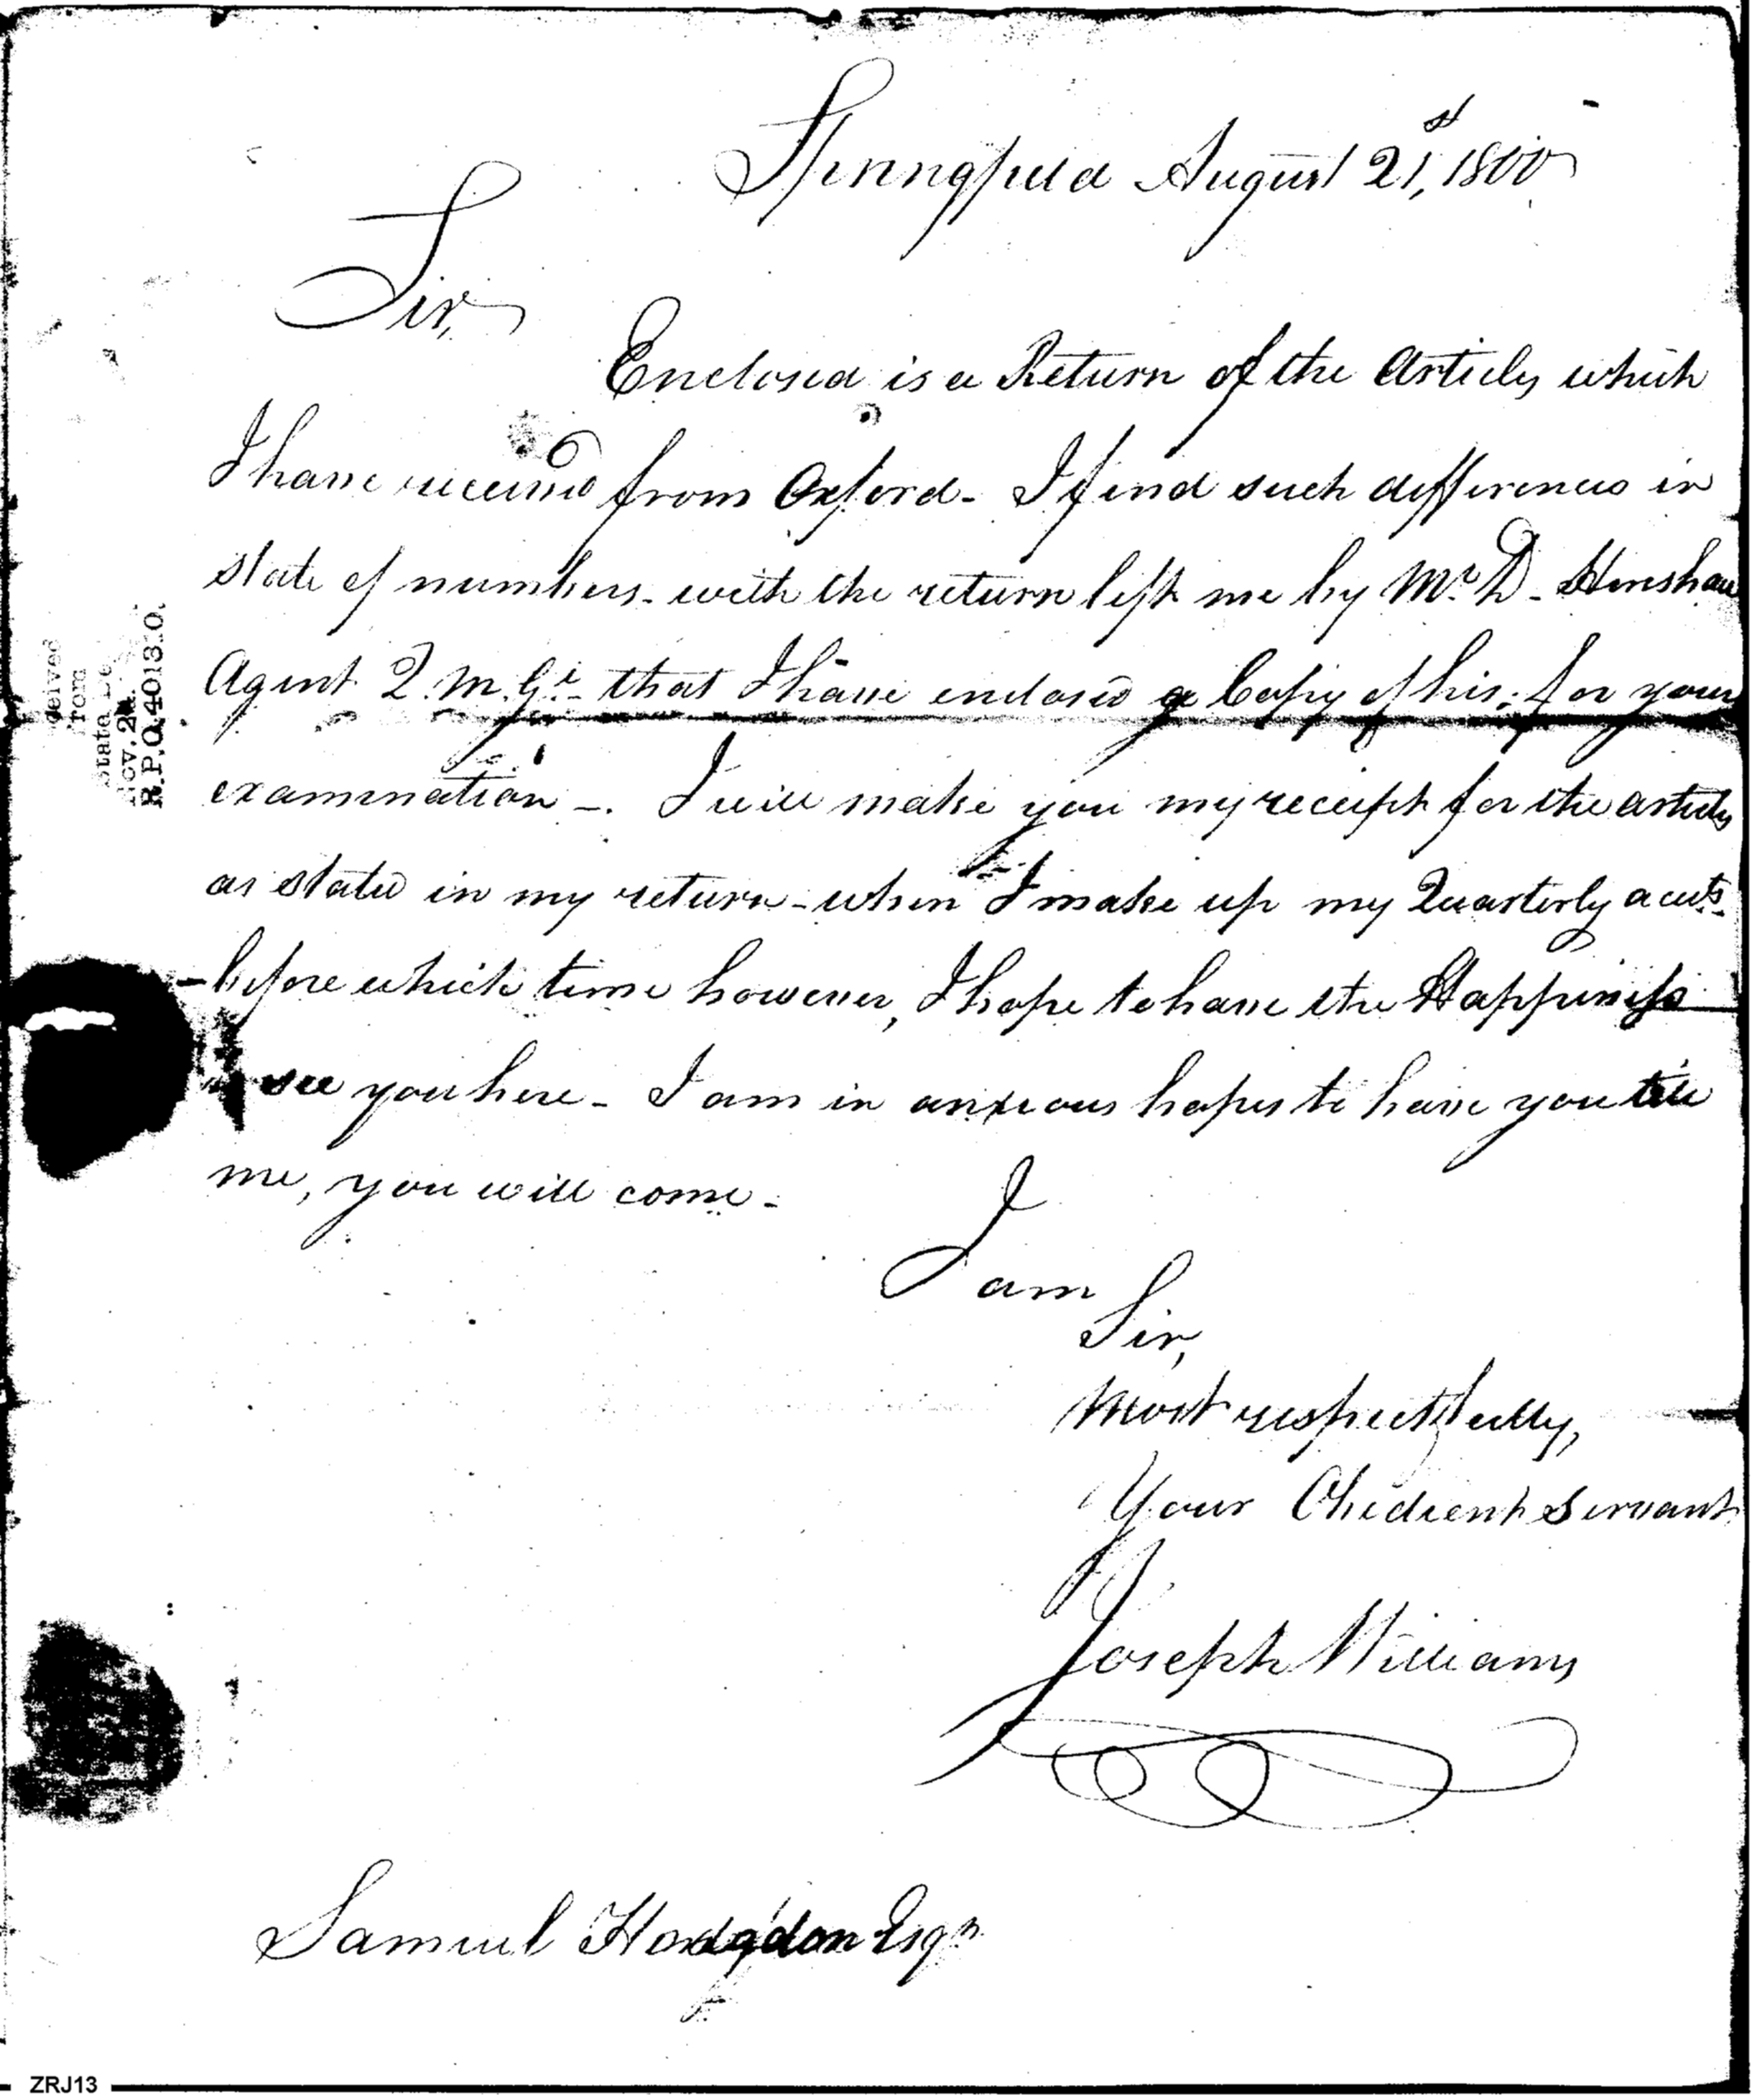 Springfield August 21st, 1800
Sir,
Enclosed is a Return of the Articles which
I have received from Oxford - I find such differences in
state of numbers - with the return left me by Mr. D - Henshaw
Agent Q. M. G. that I have enclosed a Copy of his, for your
examination -. I will make you my receipt for the articles
as stated in my return - when I make up my Quarterly accts.
- before which time however, I hope to have the Happiness
see you here - I am in anxious hopes to have you tell
me, you will come -
I am
Sir,
Most respectfully,
Your Obedient Servant
Joseph Williams
Samuel Hodgdon Esqr.
R.P.O.401310.
ZRJ13